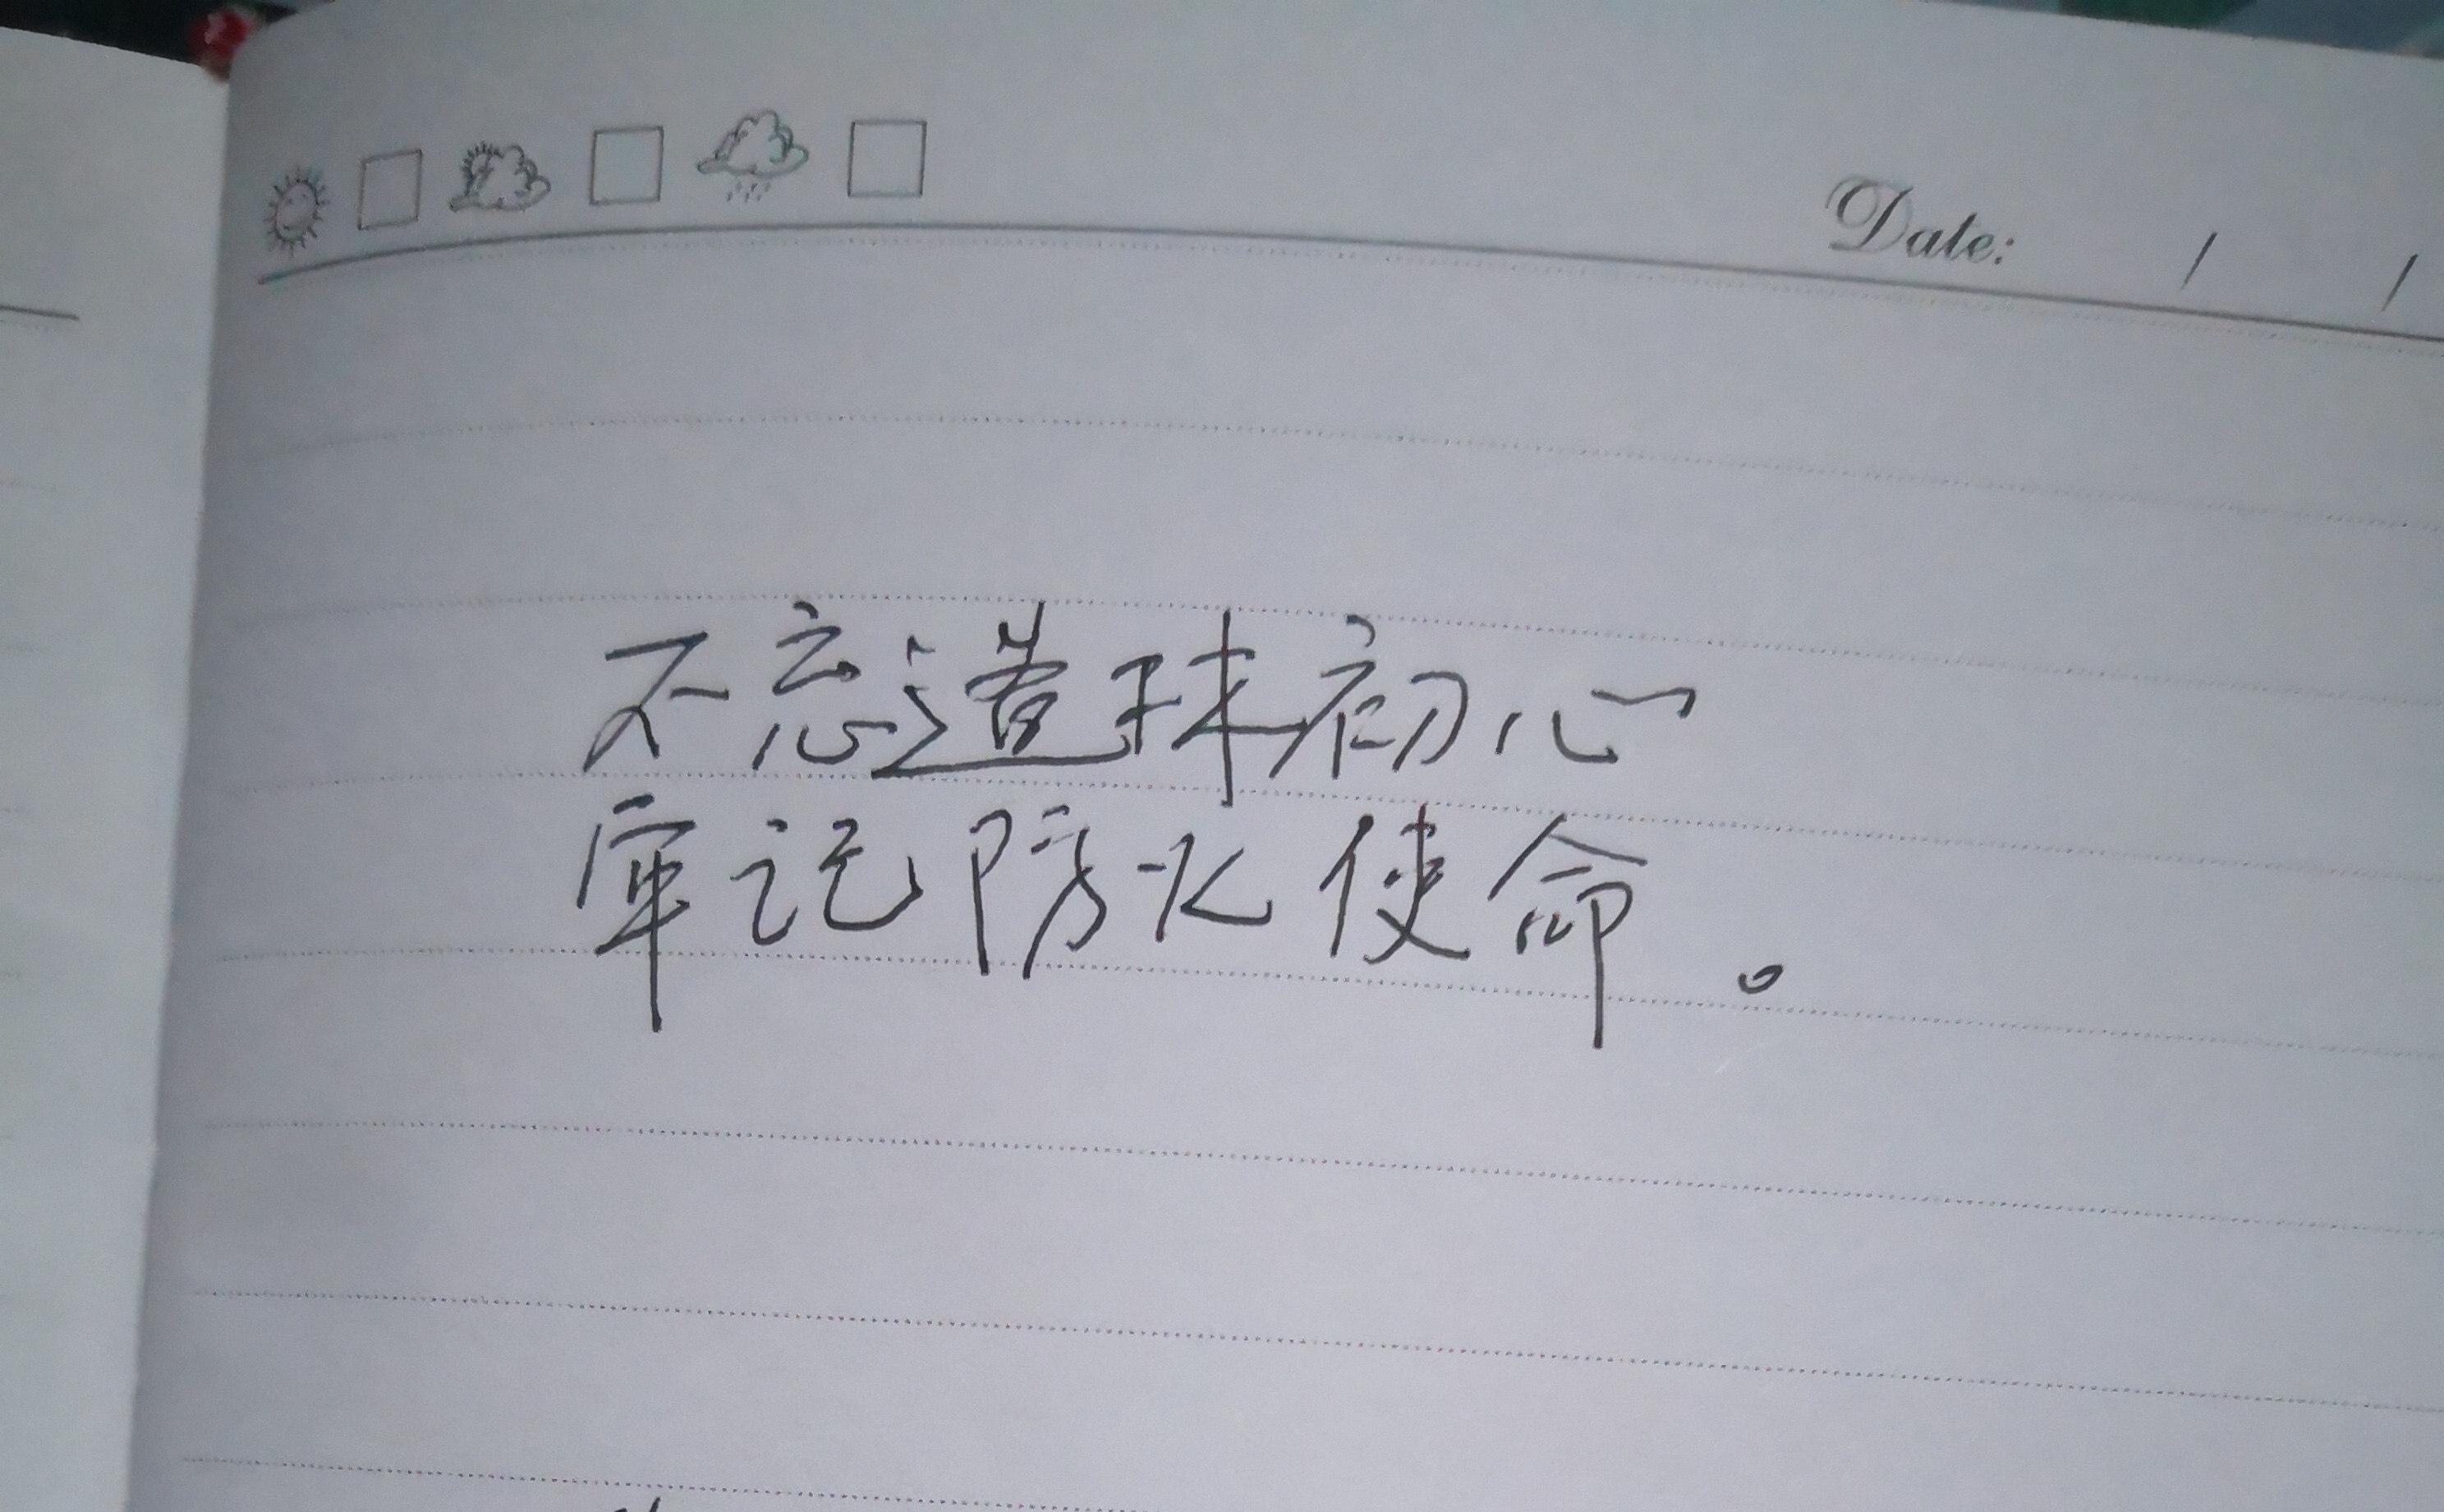 Date: / /
不忘造林初心
牢记防火使命。